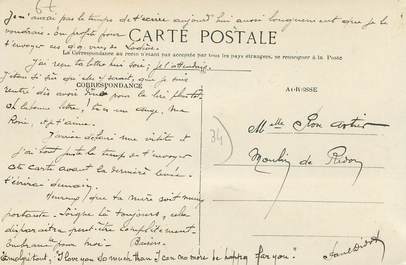 Je n'aurai pas le temps de t'écrire aujourd'hui aussi longuement que je le
voudrais. J'en profite pour
CARTE POSTALE
t'envoyer ces q.q. vues de
La Correspondance au recto n'étant pas acceptée par tous les pays étrangers, se renseigner à la Poste
J'ai reçu ta lettre hier soir; je l'attendais.
J'étais si sûr qu'elle serait, que je suis
CORRESPONDANCE
rentré dès avoir dîné pour la lire plus tôt.
ta bonne lettre, tu es un ange, ma
et je t'aime.
J'arrive défaire une visite et
j'ai tout juste le temps de t'envoyer
cette carte avant la dernière levée.
t'écrirai demain.
Heureux que ta mère soit mieux
portante. Soigne là toujours, cela
disparaîtra peut-être complètement.
Embrasse pour moi - Baisers.
"I love you so much than I can no more be happy far you"
ADRESSE
34
Melle
Moulin de